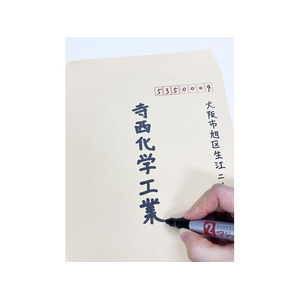 5350004
大阪市旭区生江二
寺西化学工業